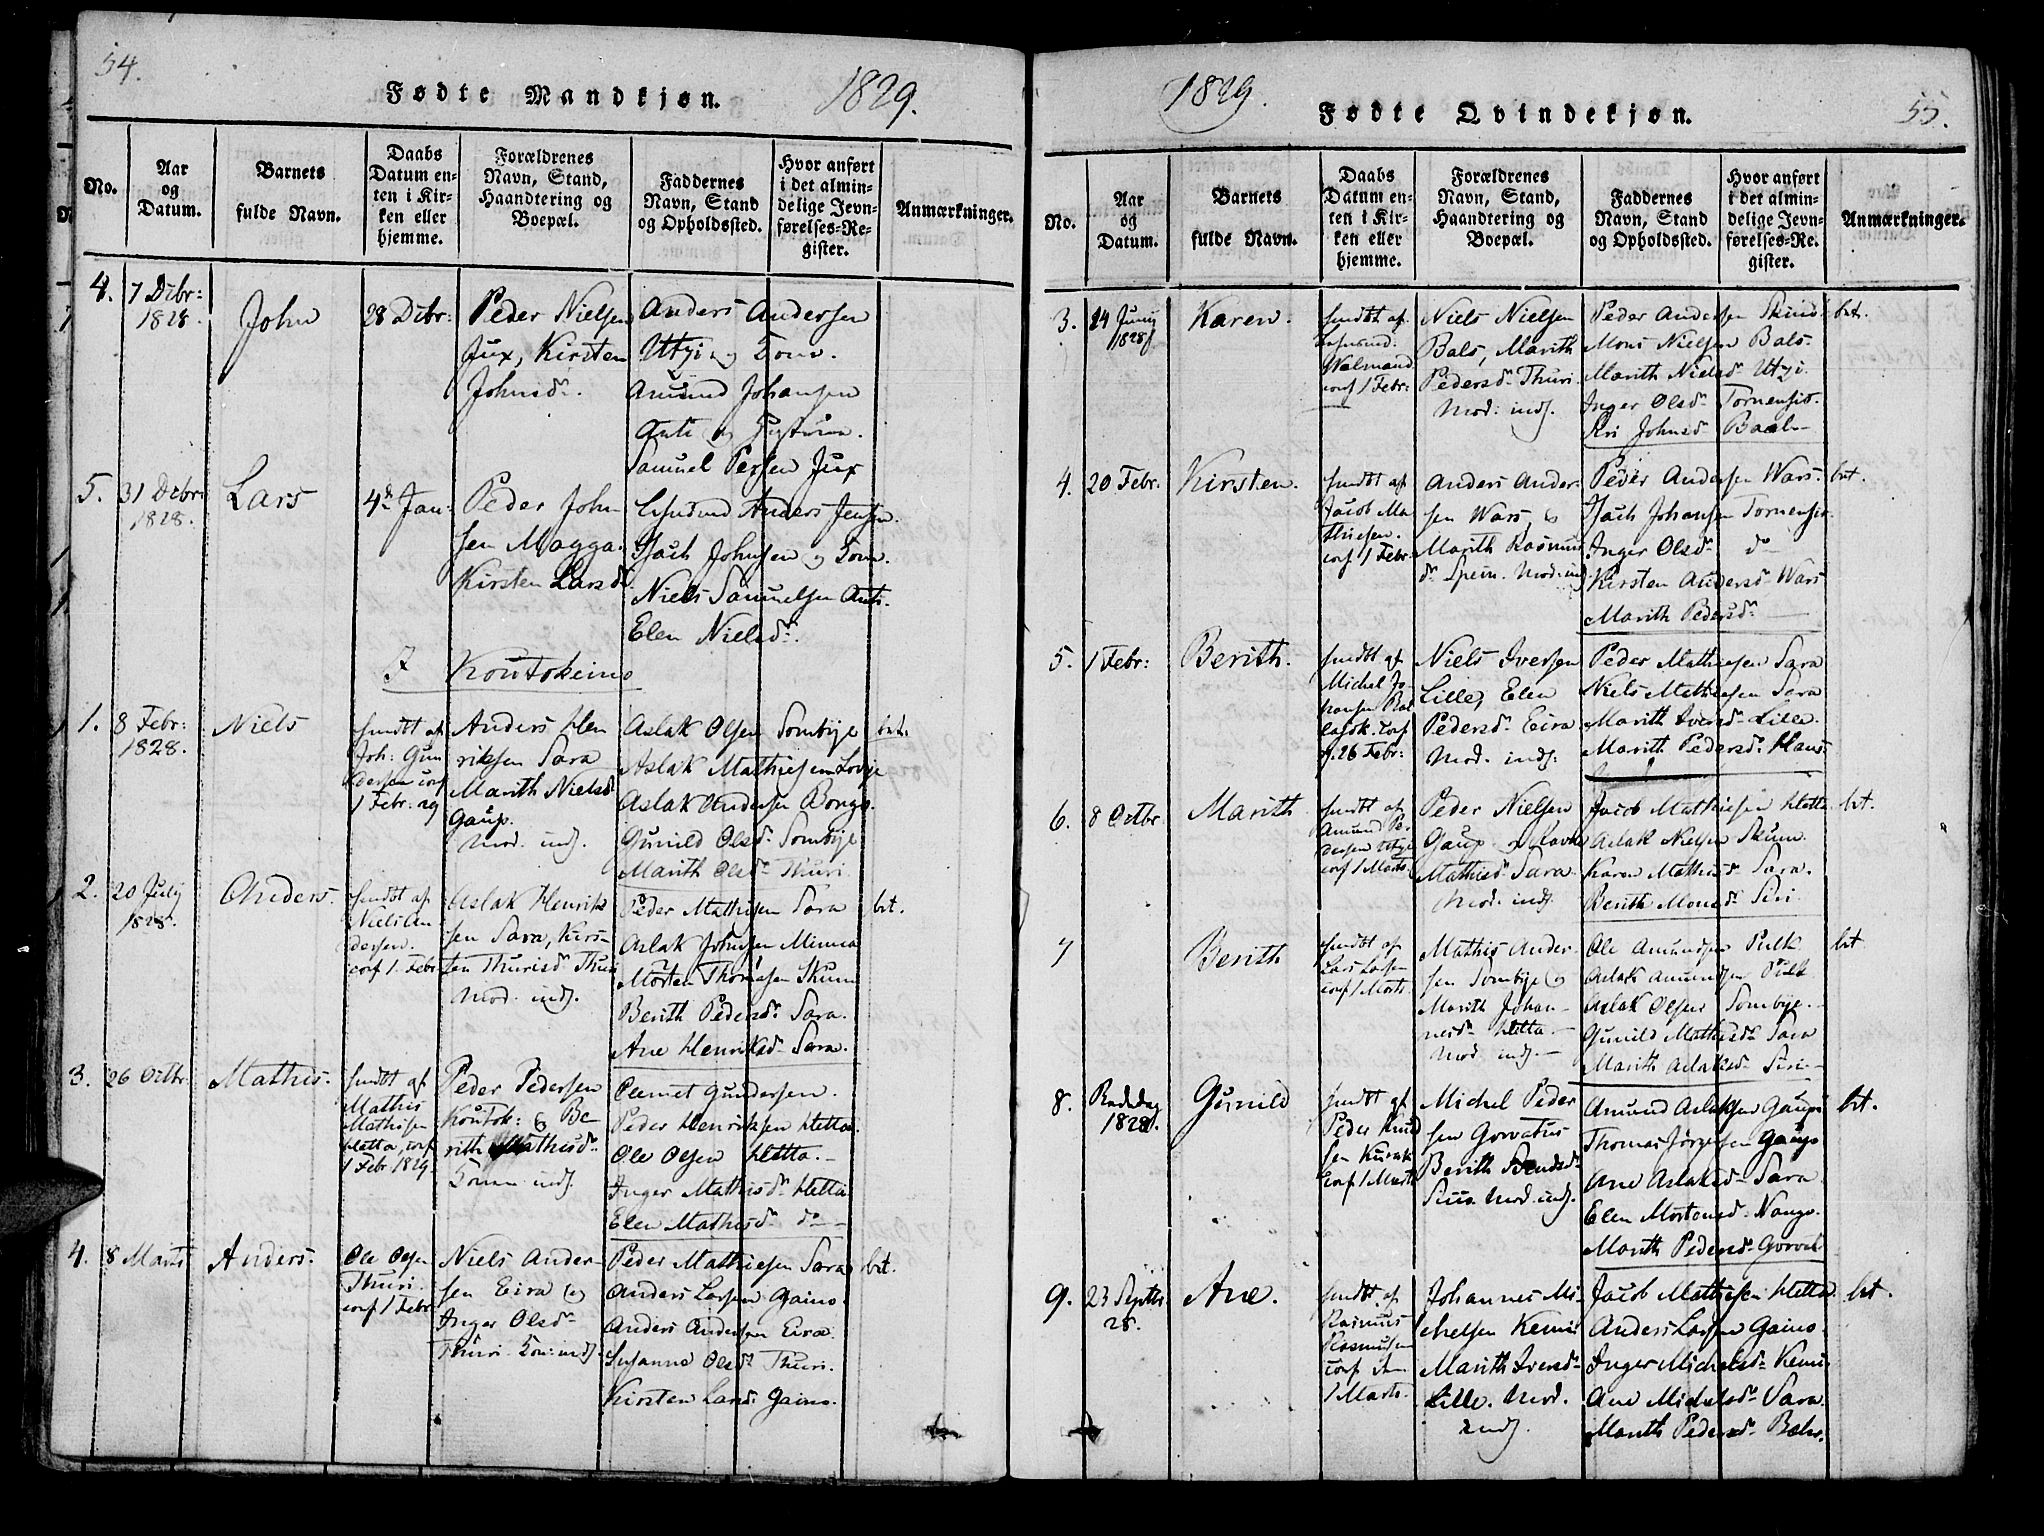 54.
Fødte Mandkjøn.
1829.
No.
Aar
og
Datum.
Barnets
fulde Navn.
Daabs
Datum en-
ten i Kir-
ken eller
hjemme.
Forældrenes
Navn, Stand,
Haandtering og
Boepæl.
Faddernes
Navn, Stand
og Opholdssted.
Hvor anført
i det almin-
delige Jevn-
førelses-Re-
gister.
Anmærkninger.
4.
7 Dcbr:
1828.
John
28 Dcbr:
Peder Nielsen
Jux, Kirsten
Johnsd.
Anders Andersen
Utzi og Kone.
Amund Johansen
Anti og
Samuel Persen Jux
5.
31 Dcbr:
1828.
Lars
4de Jan:
Peder John
sen Magga.
Kirsten Larsd.
Anders Jensen.
Isach Johnsen og Kone.
Niels Samuelsen Anti.
Elen Nielsd.
I Koutokeino
1.
8 Febr:
1828.
Niels
hmdbt af
Joh: Gun
dersen conf
1 Febr. 29
Anders Hen
riksen Sara
Marith Nielsd
Gaup.
Nod. indf.
Aslak Olsen Sombye
Aslak Mathiesen Lovje
Aslak Andersen Bongo.
Gunild Olsd. Sombye
Marith Olsd. Thuri.
brt.
2.
20 July
1828.
Anders.
hmdbt af
Niels An
dersen.
conf 1. Febr
Aslak Henrik
sen Sara, Kirs-
ten Thurisd. Thuri
Nod. indf.
Peder Mathisen Sara
Aslak Johnsen Minna
Morten Thomasen Skum
Berith Pedersd. Sara.
Ane Henriksd. Sara.
brt.
3.
26 Octbr
Mathis.
hmdbt af
Mathis
Mathisen
Hetta, conf
1 Febr. 1829.
Peder Pedersen
Koutok: og Be
rith Mathisd.
indf.
Clemet Gundersen.
Peder Henriksen Hetta.
Ole Olsen Hetta.
Inger Mathisd. Hetta
Elen Mathisd. do
4.
8 Marts
Anders.
Ole Olsen
Thuri.
conf 1 Febr
Niels Ander-
sen Eira og
Inger Olsd.
Thuri. indf.
Peder Mathiesen Sara
Anders Larsen Gaino.
Anders Andersen Eira.
Susanne Olsd. Thuri.
Kirsten Larsd. Gaino.
brt.
1829.
Fødte Qvindekjøn.
55.
No.
Aar
og
Datum.
Barnets
fulde Navn.
Daabs
Datum en-
ten i Kir-
ken eller
hjemme.
Forældrenes
Navn, Stand,
Haandtering og
Boepæl.
Faddernes
Navn, Stand
og Opholdssted.
Hvor anført
i det almin-
delige Jevn-
førelses-Re-
gister.
Anmærkninger.
3.
24 Juny
1828
Karen.
hmdbt af
Walmand
conf 1 Febr:
Niels Nielsen
Bals, Marith
Pedersd. Thuri
Nod: indf.
Peder Andersen Skind
Mons Nielsen Bals.
Marith Nielsd. Utzi.
Inger Olsd. Tornensis.
Kri Johnsd. Baal
brt.
4.
20 Febr:
Kirsten.
hmdbt af
Jacob Ma
thiesen.
conf 1 Febr:
Anders Ander-
sen Wars, og
Marith Rasmus
d. Spein. Nod. indf
Peder Andersen Wars.
Isach Johansen Tornensis.
Inger Olsd. do
Kirsten Andersd. Wars
Marith Pedersd.
brt.
5.
1 Febr:
Berith.
hmdbt af
Michel Jo-
hansen
conf
d. 26 Febr:
Niels Iversen
Lille, Elen
Pedersd. Eira
Nod. indf.
Peder Mathiesen Sara
Niels Mathiesen Sara
Marith Iversd. Lille.
Marith Pedersd. Hans
6.
8 Octbr
Marith
hmdbt af
Amund Pe-
dersen Utzi
conf 1 Marts
Peder Nielsen
Gaup og
Mathisd. Sara.
Nod. indf.
Jacob Mathiesen Hetta
Aslak Nielsen Skum.
Karen Mathisd. Sara.
Berith Monsd. Siri
brt.
7
Berith
hmdbt af
Lars Larsen
conf 1 Marts.
Mathis Ander-
sen Sombye og
Marith Johan-
nesd. Hetta.
Nod. indf.
Ole Amundsen Pulk
Aslak Amundsen Pulk
Aslak Olsen Sombye.
Gunild Mathisd. Sara
Marith Aslaksd. Siri
brt
8.
1828.
Gunild
hmdbt af
Peder Knud
sen Kurak
conf 1 Marts
Michel Peder
sen Gorvatus
Berith
Nod. indf.
Amund Aslaksen Gaup
Thomas Jørgensen Gaup
Ane Aslaksd. Sara
Elen Mortensd. Nango.
Marith Pedersd. Gorvat
brt.
9.
23 Septbr
28.
Ane.
hmdbt af
Rasmus
Rasmusen
conf
1 Marts.
Johannes Mi-
chelsen Kemi
Marith Iversd.
Lille. Nod.
indf.
Jacob Mathiesen Hetta
Anders Larsen Gaino.
Inger Michelsd. Kemi
Ane Michelsd. Sara
Marith Pedersd. Bæhr.
brt.